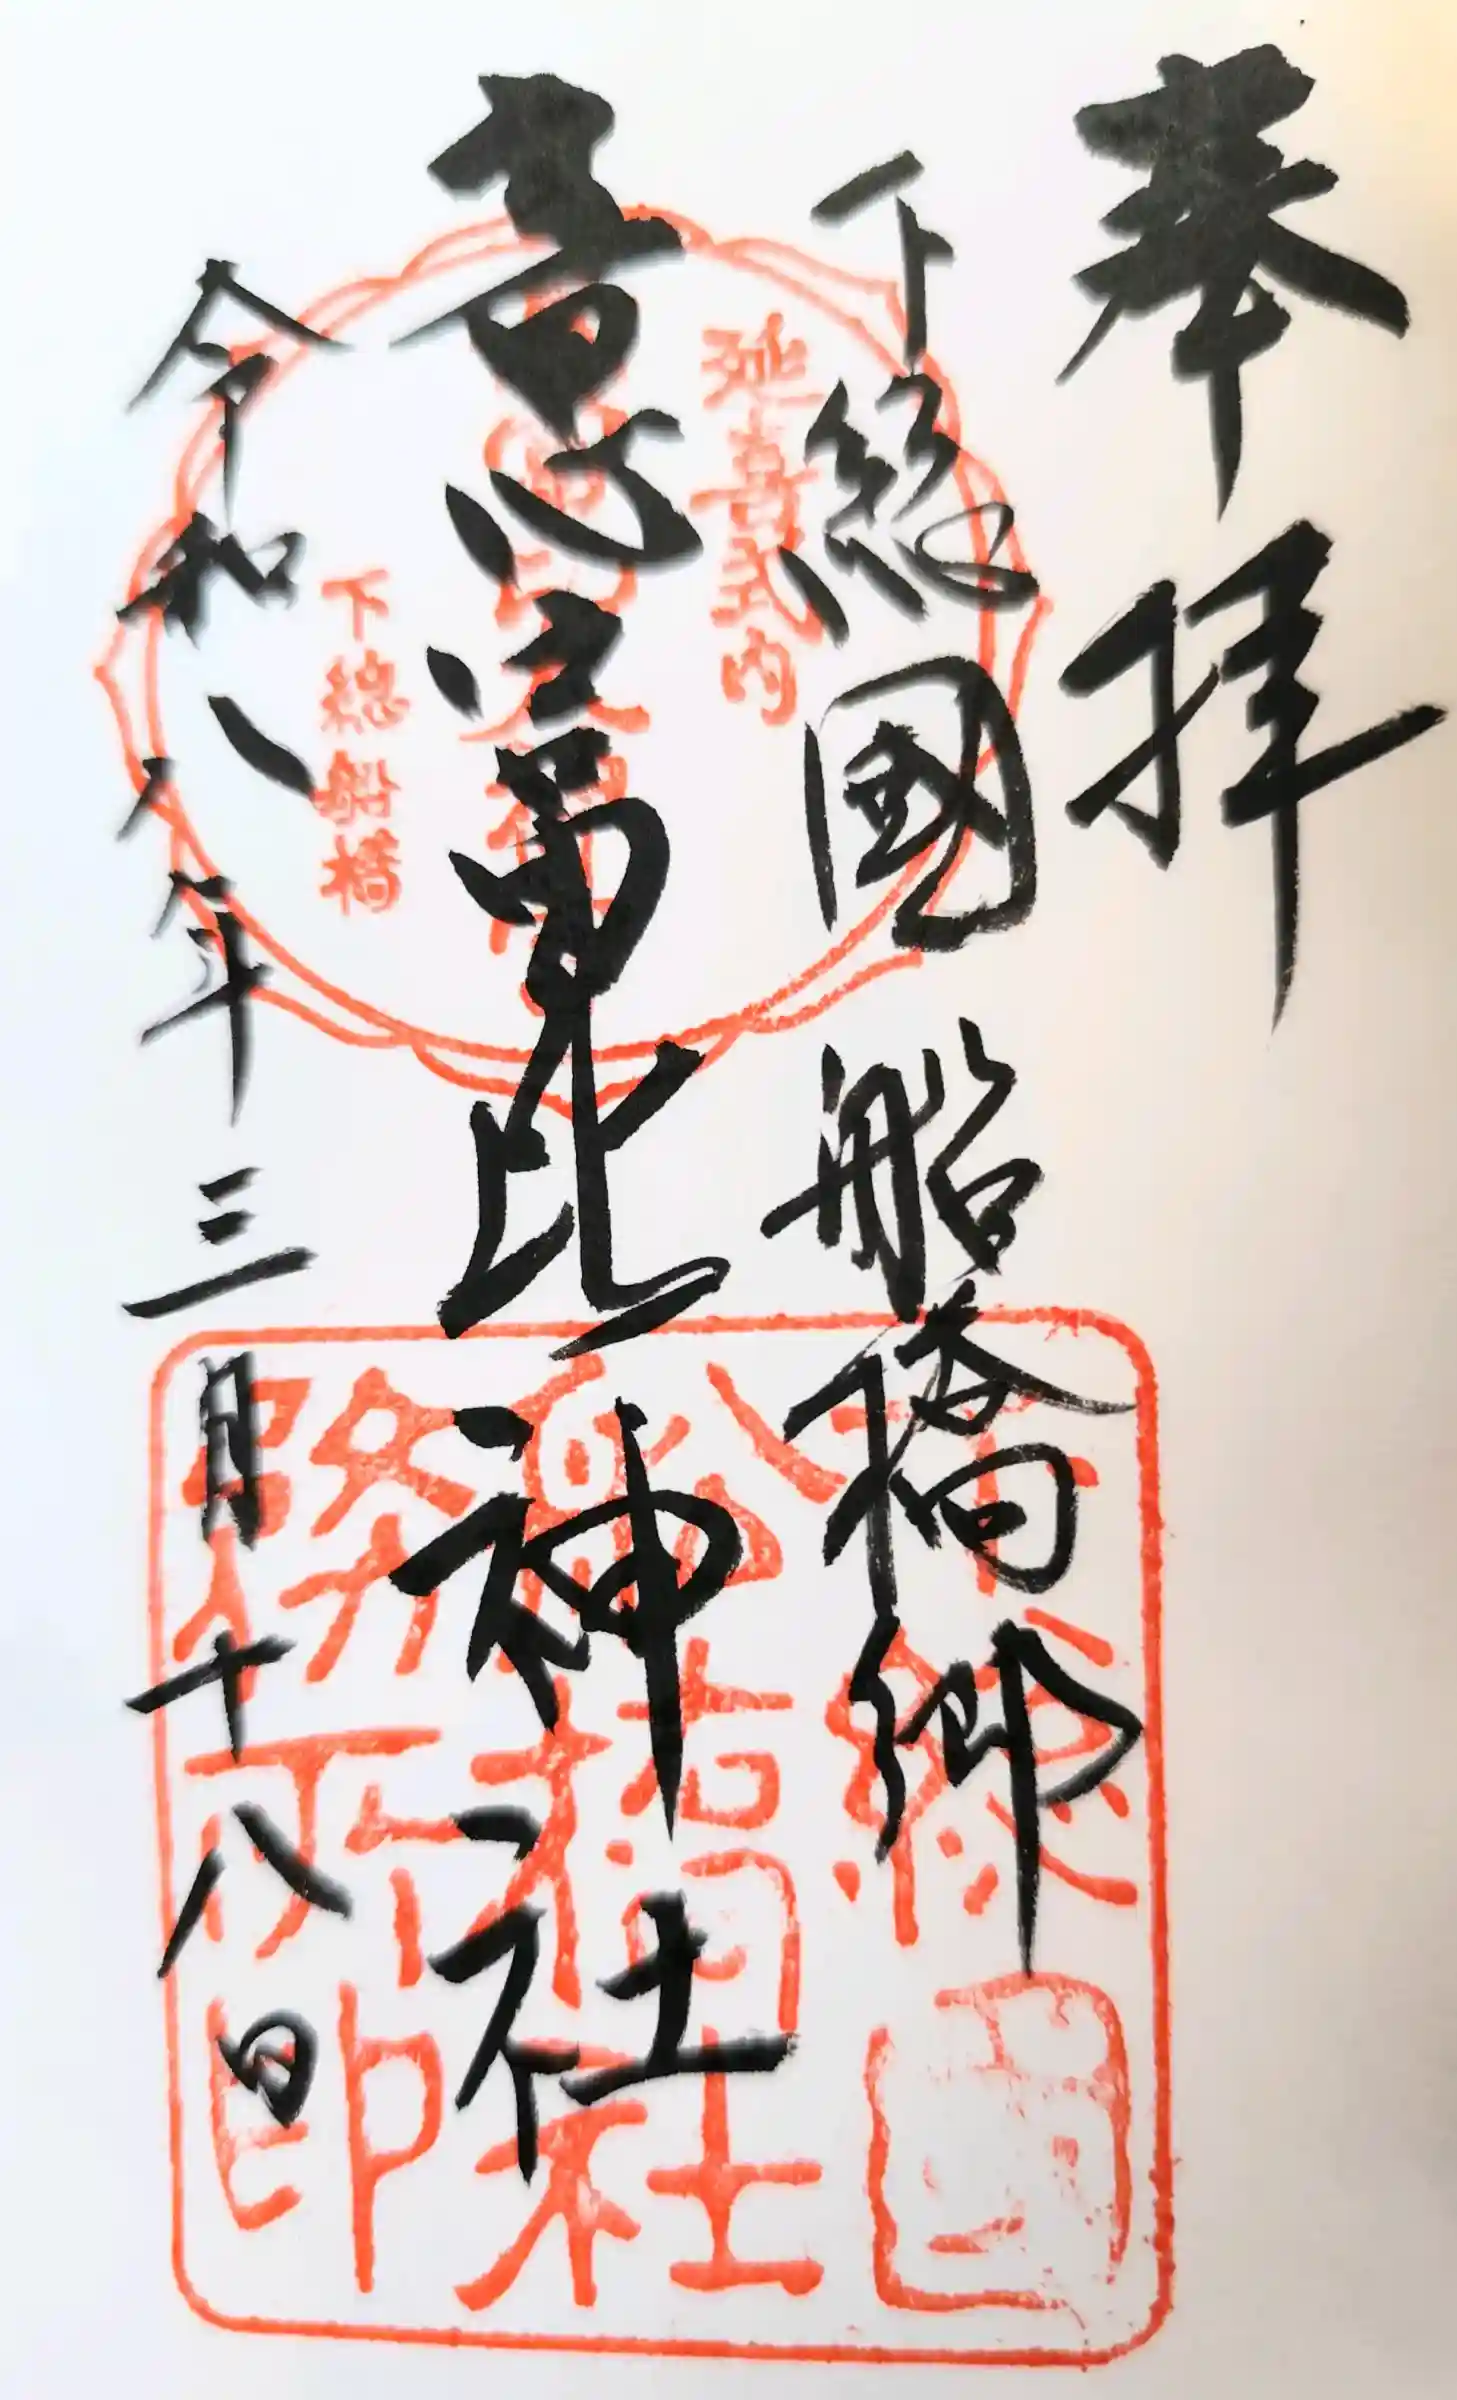 奉拝
下総國船橋郷
意富比神社
令和八年三月十八日
延喜式内
下総船橋
船橋
社
務所印